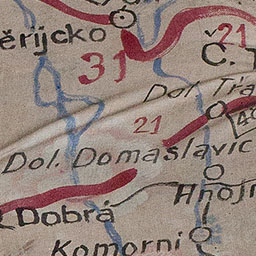 ěrijcko
21
Č.
31
Dol.
21
Dol. Domaslavic
Hnojn
Dobrá
Komorni